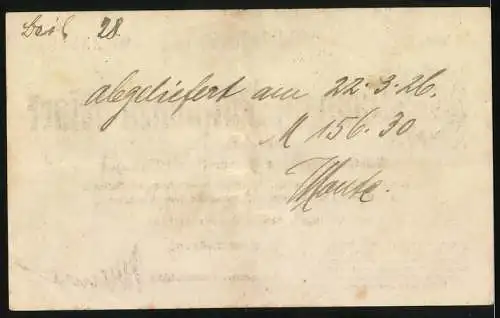 28.
abgeliefert am 22.3.26.
M 156.30